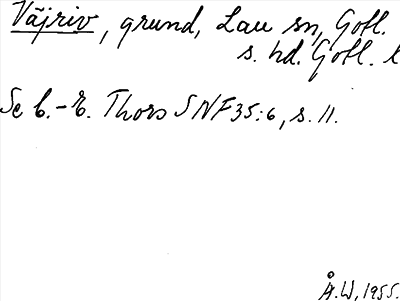 Väjriv, grund, Lau sn, Gotl.
s. hd. Gotl. l
Se C.-E. Thors SNF 35:6, s. 11.
Å.W, 1955.